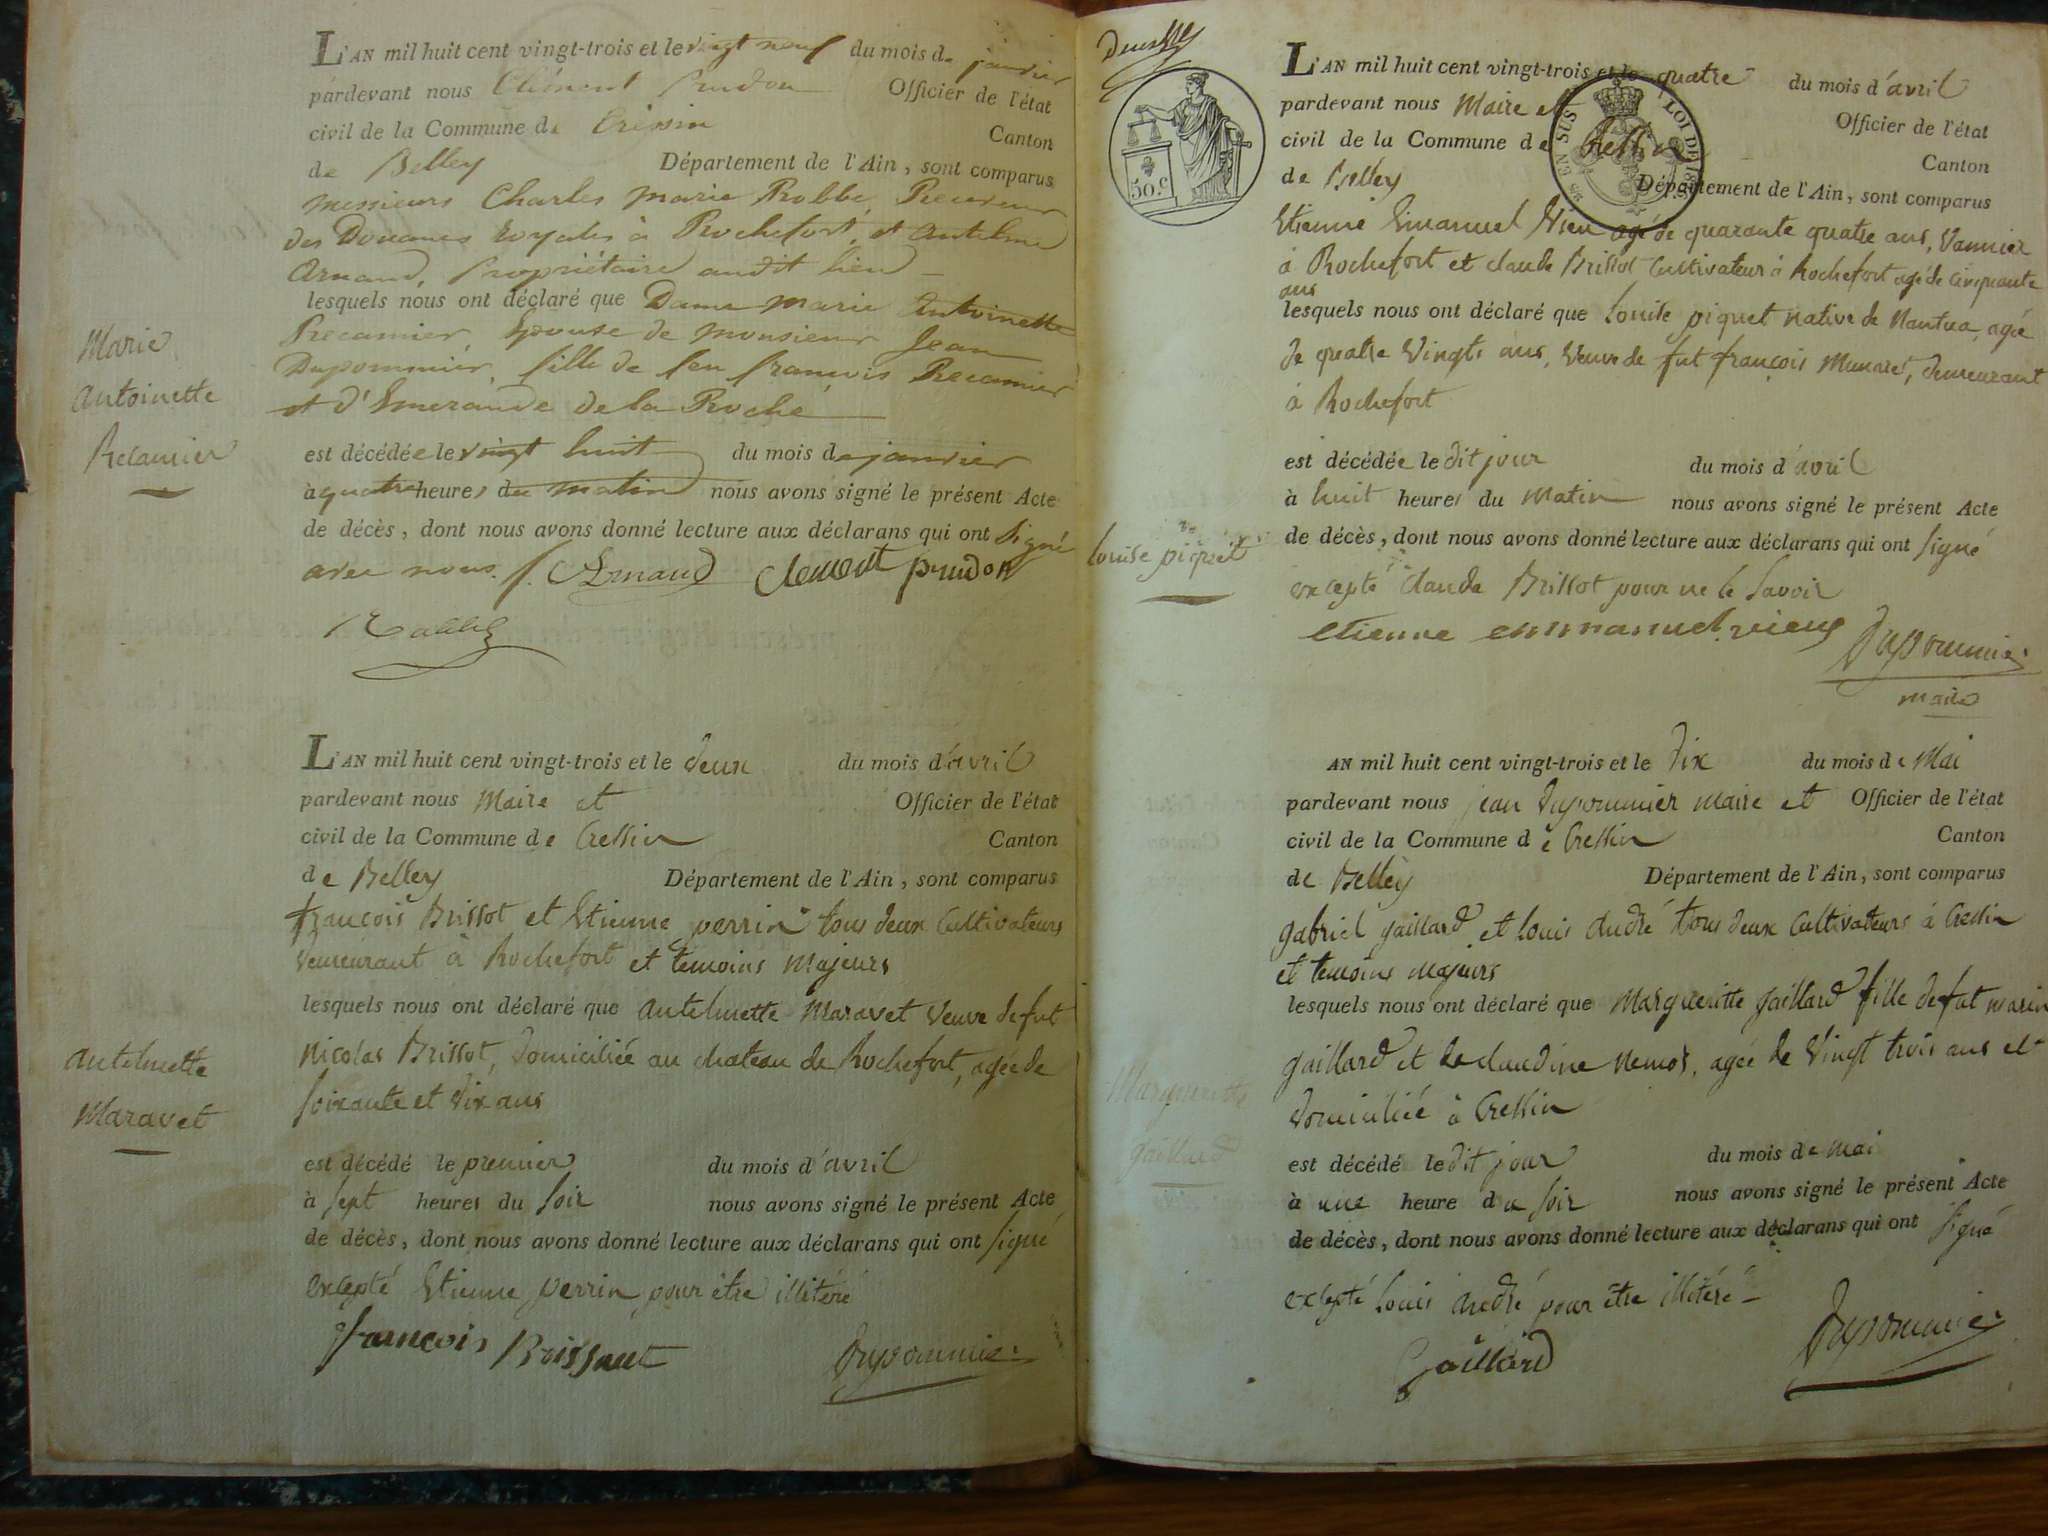 L'AN mil huit cent vingt-trois et le vingt neuf du mois de janvier
pardevant nous Clément Prudon Officier de l'état
civil de la Commune de Cressin Canton
de Belley Département de l'Ain, sont comparus
messieurs Charles marie Robbe, Receveur
des Douanes royales à Rochefort, et Antelme
Arnaud, Propriétaire audit lieu
lesquels nous ont déclaré que Dame marie Antoinette
Recamier, Epouse de monsieur Jean
Dupommier, fille de feu françois Recamier
et d'Emerande de la Roche
est décédée le vingt huit du mois de janvier
à quatre heures du matin nous avons signé le présent Acte
de décès, dont nous avons donné lecture aux déclarans qui ont signé
avec nous. Arnaud Clement prudon
Robbe
Marie
Antoinette
Recamier
L'AN mil huit cent vingt-trois et le deux du mois d'avril
pardevant nous Maire et Officier de l'état
civil de la Commune de Cressin Canton
de Belley Département de l'Ain, sont comparus
françois Brissot et Etienne perrin tous deux Cultivateurs
demeurant à Rochefort et temoins majeurs
lesquels nous ont déclaré que antelmette Maravet veuve de fut
Nicolas Brissot, domiciliée au chateau de Rochefort, agée de
soixante et dix ans
est décédé le premier du mois d'avril
à sept heures du soir nous avons signé le présent Acte
de décès, dont nous avons donné lecture aux déclarans qui ont signé
excepté Etienne perrin pour être illitéré
francois Brissaut Dupommier
antelmette
Maravet
50.c
EN SUS LOI DE
L'AN mil huit cent vingt-trois et le quatre du mois d'avril
pardevant nous Maire et Officier de l'état
civil de la Commune de Cressin Canton
de Belley Département de l'Ain, sont comparus
Etienne Emanuel agé de quarante quatre ans, Vannier
à Rochefort et claude Brissot Cultivateur à Rochefort agé de cinquante
ans
lesquels nous ont déclaré que louise piquet native de Nantua, agée
de quatre vingts ans, veuve de fut françois Munaret, demeurant
à Rochefort
est décédée le dit jour du mois d'avril
à huit heures du Matin nous avons signé le présent Acte
de décès, dont nous avons donné lecture aux déclarans qui ont signé
excepté Claude Brissot pour ne le savoir
etienne emmanuel Dupommier
maire
louise piquet
AN mil huit cent vingt-trois et le dix du mois de Mai
pardevant nous jean Dupommier maire et Officier de l'état
civil de la Commune de Cressin Canton
de Belley Département de l'Ain, sont comparus
gabriel gaillard et louis andré tous deux Cultivateurs à Cressin
et temoins majeurs
lesquels nous ont déclaré que Margueritte gaillard fille de fut marin
gaillard et de claudine Nemoz, agée de vingt trois ans et
domiciliée à Cressin
est décédé le dit jour du mois de mai
à une heure du soir nous avons signé le présent Acte
de décès, dont nous avons donné lecture aux déclarans qui ont signé
excepté louis andré pour être illitéré
Gaillard Dupommier
Margueritte
gaillard